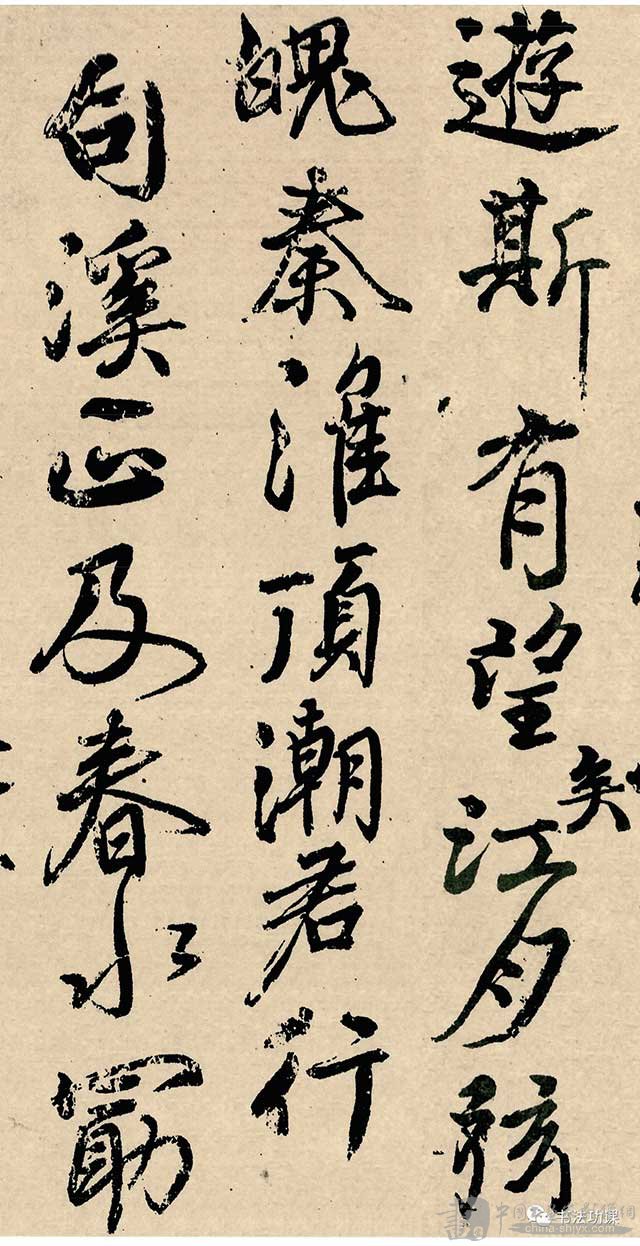 遊斯有望江月
矣
魄秦淮頂潮君行
句溪正及春水
书法功课
china-shjyx.com